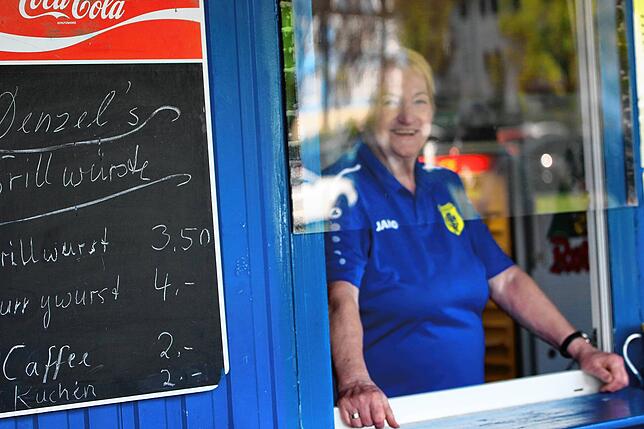 Coca-Cola
Denzel's
Grillwürste
Grillwurst 3,50
Currywurst 4,-
Caffee 2,-
Kuchen 2,-
JAKO